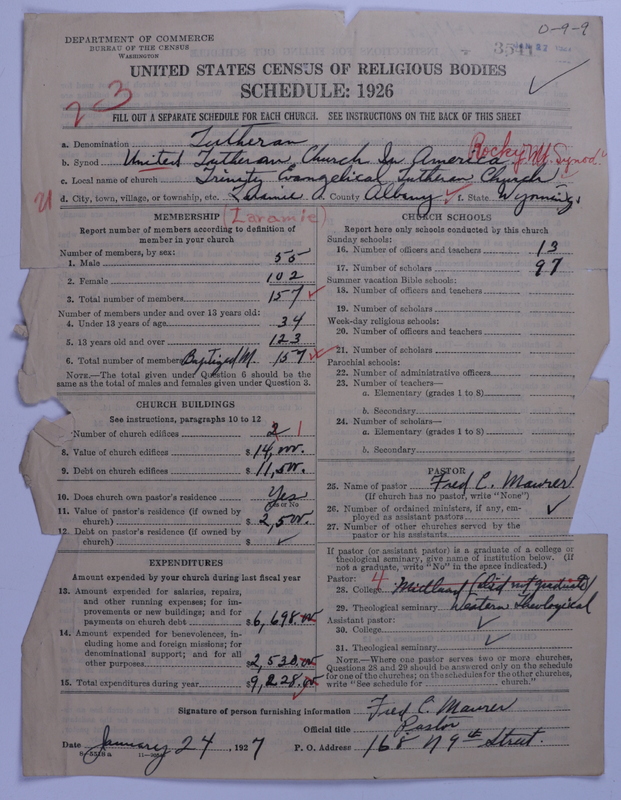 O-9-9
DEPARTMENT OF COMMERCE
BUREAU OF THE CENSUS
WASHINGTON
3541
UNITED STATES CENSUS OF RELIGIOUS BODIES
SCHEDULE: 1926
23
FILL OUT A SEPARATE SCHEDULE FOR EACH CHURCH. SEE INSTRUCTIONS ON THE BACK OF THIS SHEET
a. Denomination Lutheran
b. Synod United Lutheran Church In America Rocky Mt. Synod
c. Local name of church Trinity Evangelical Lutheran Church
d. City, town, village, or township, etc. Laramie e. County Albany f. State Wyoming
(Laramie)
MEMBERSHIP
Report number of members according to definition of
member in your church
Number of members, by sex:
1. Male 55
2. Female 102
3. Total number of members 157
Number of members under and over 13 years old:
4. Under 13 years of age 34
5. 13 years old and over 123
6. Total number of members Baptized M. 157
NOTE.—The total given under Question 6 should be the
same as the total of males and females given under Question 3.
CHURCH BUILDINGS
See instructions, paragraphs 10 to 12
Number of church edifices 2 1
8. Value of church edifices $14,000.
9. Debt on church edifices $11,500.
10. Does church own pastor's residence Yes
Yes or No
11. Value of pastor's residence (if owned by
church) $2,500.
12. Debt on pastor's residence (if owned by
church) $ ✓
EXPENDITURES
Amount expended by your church during last fiscal year
13. Amount expended for salaries, repairs,
and other running expenses; for im-
provements or new buildings; and for
payments on church debt $6,698.00
14. Amount expended for benevolences, in-
cluding home and foreign missions; for
denominational support; and for all
other purposes $2,530.00
15. Total expenditures during year $9,228.00
CHURCH SCHOOLS
Report here only schools conducted by this church
Sunday schools:
16. Number of officers and teachers 13
17. Number of scholars 97
Summer vacation Bible schools:
18. Number of officers and teachers
19. Number of scholars
Week-day religious schools:
20. Number of officers and teachers
21. Number of scholars
Parochial schools:
22. Number of administrative officers
23. Number of teachers—
a. Elementary (grades 1 to 8)
b. Secondary
24. Number of scholars—
a. Elementary (grades 1 to 8)
b. Secondary
PASTOR
25. Name of pastor Fred C. Maurer
(If church has no pastor, write "None")
26. Number of ordained ministers, if any, em-
ployed as assistant pastors ✓
27. Number of other churches served by the
pastor or his assistants
If pastor (or assistant pastor) is a graduate of a college or
theological seminary, give name of institution below. (If
not a graduate, write "No" in the space indicated.)
Pastor: 4
28. College Midland (did not graduate)
29. Theological seminary Western Theological
Assistant pastor:
30. College ✓
31. Theological seminary ✓
NOTE.—Where one pastor serves two or more churches,
Questions 28 and 29 should be answered only on the schedule
for one of the churches; on the schedules for the other churches,
write "See schedule for church."
Signature of person furnishing information Fred C. Maurer
Official title Pastor
Date January 24, 1927 P. O. Address 168 N 9th Street.